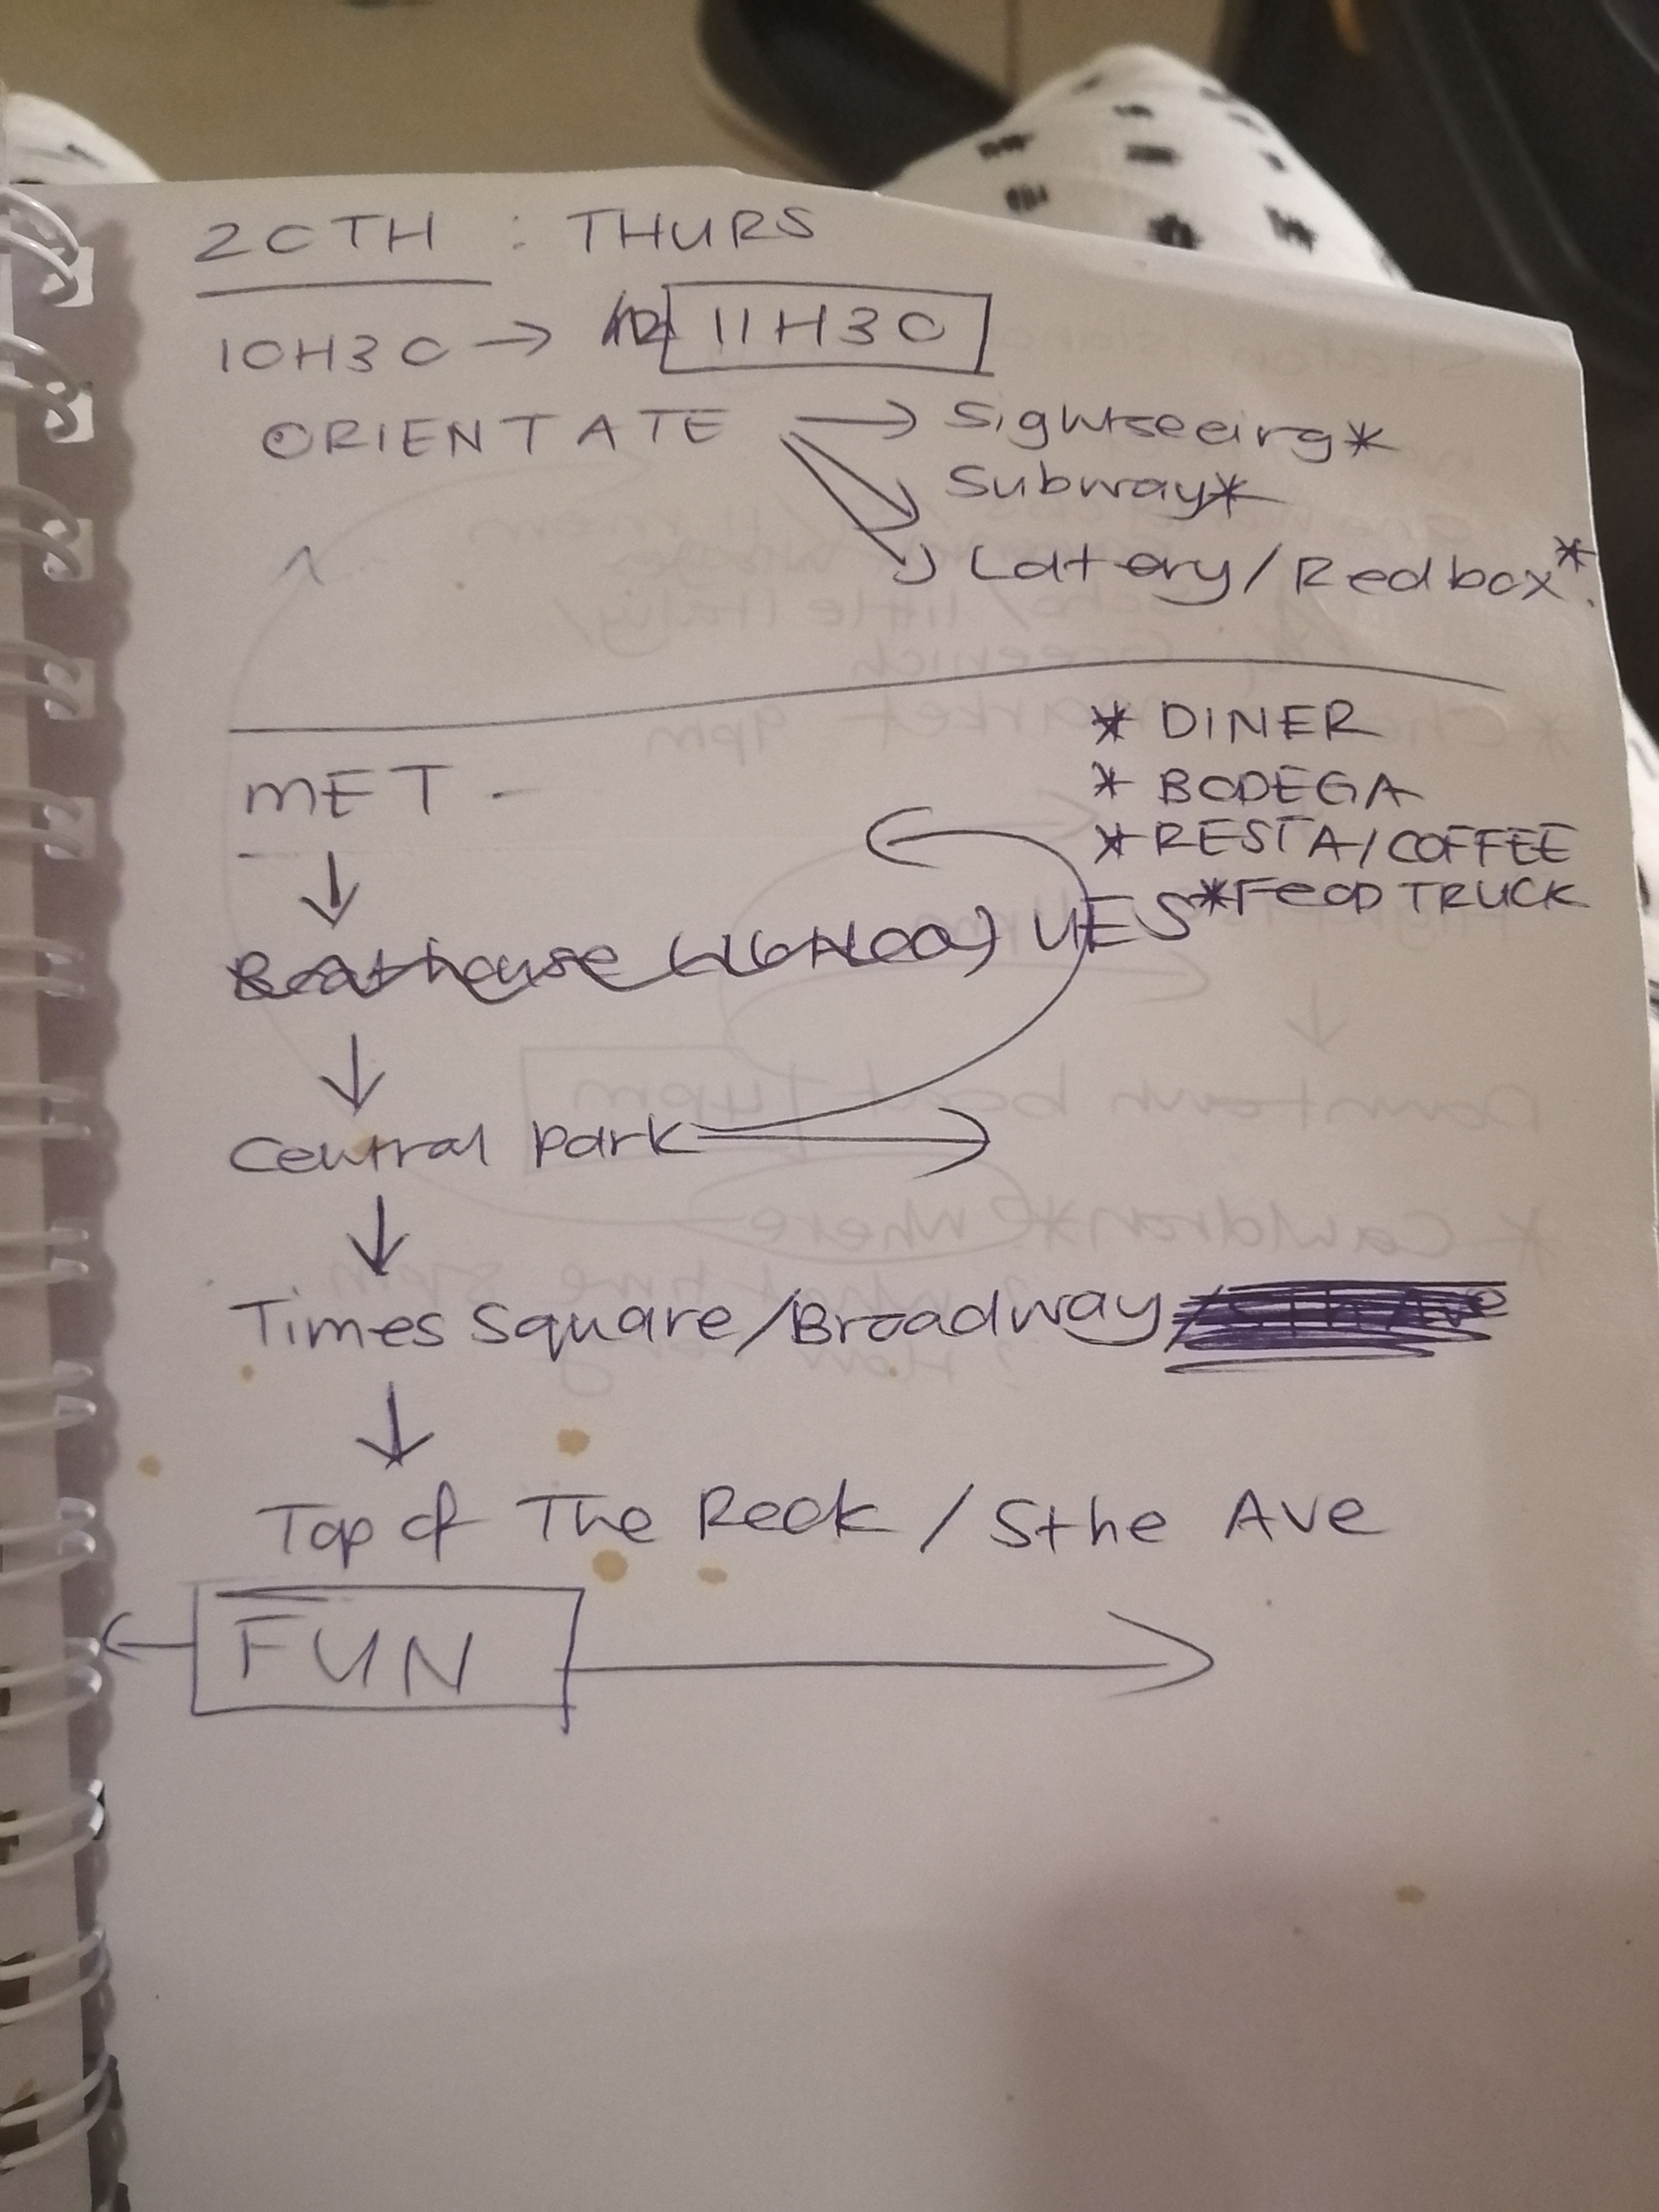 20TH : THURS
10H30 → 11H30
ORIENTATE → Sightseeing*
Subway*
Lottery/Redbox*
* DINER
MET - * BODEGA
* RESTA/COFFEE
*FOOD TRUCK
Boathouse (16H00) UES
Central park
Times Square/Broadway /5th Ave
Top of The Rock / 5the Ave
FUN